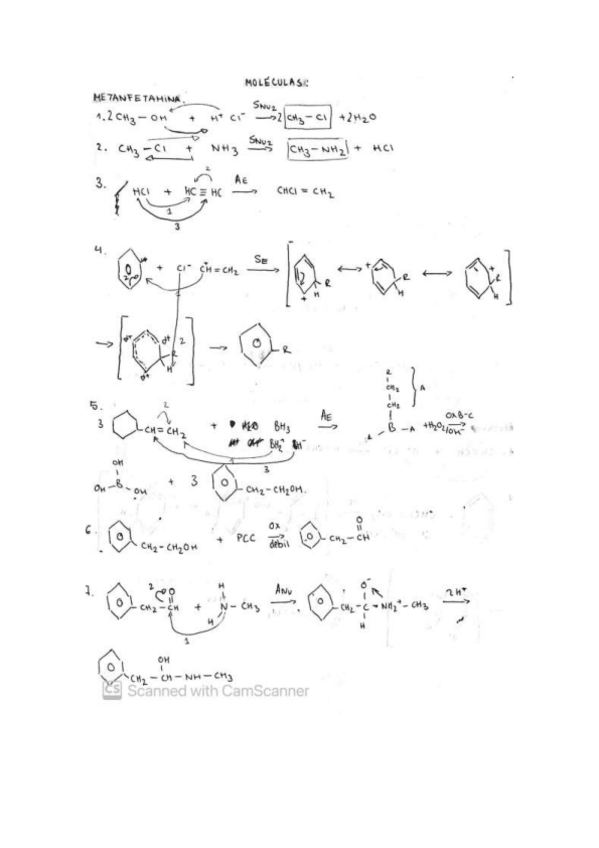 MOLÉCULAS:
METANFETAMINA.
1. 2 CH3 — OH + H+ Cl- SNu2 → 2 CH3 — Cl + 2H2O
2. CH3 — Cl + NH3 SNu2 → CH3 — NH2 + HCl
3. HCl + HC ≡ HC AE → CHCl = CH2
2
1
3
4. + Cl- CH+ = CH2 SE → R H + ↔ + R H ↔ + R H
→ R H 2 → R
5. 3 CH = CH2 + BH3 AE → B — A + H2O2/OH- OXB-C →
R
CH2
CH2
A
BH2+ H-
2
1
3
OH
OH — B — OH + 3 CH2 — CH2OH.
6. CH2 — CH2OH + PCC OX débil → CH2 — CH O
7. CH2 — CH O + H N — CH3 H ANu → CH2 — C O- H — NH2+ — CH3 2H+ →
2
1
OH
CH2 — CH — NH — CH3
CS Scanned with CamScanner